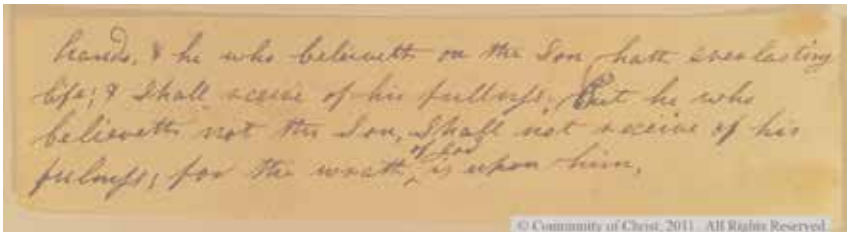 hands, & he who believeth on the Son hath everlasting
life; & Shall receive of his fullness, But he who
believeth not the Son, Shall not receive of his
of God
fulness; for the wrath ^ is upon him,
© Community of Christ, 2011 . All Rights Reserved